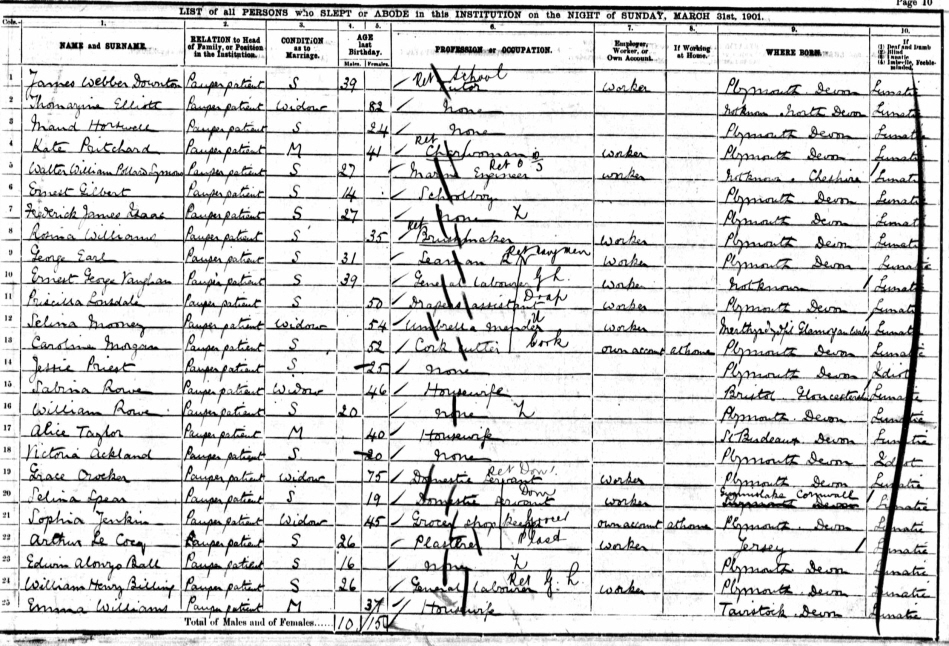 Page 10
LIST of all PERSONS who SLEPT or ABODE in this INSTITUTION on the NIGHT of SUNDAY, MARCH 31st, 1901.
1. 2. 3. 4. 5. 6. 7. 8. 9. 10.
NAME and SURNAME. RELATION to Head of Family, or Position in the Institution. CONDITION as to Marriage. AGE last Birthday. Males. Females. PROFESSION or OCCUPATION. Employer, Worker, or Own Account. If Working at Home. WHERE BORN. If (1) Deaf and Dumb (2) Blind (3) Lunatic (4) Imbecile, Feeble-minded.
1 James Webber Downton Pauper patient S 39 Ret School Tutor Worker Plymouth Devon Lunatic
2 Thomazine Elliott Pauper patient Widow 82 None Notknown North Devon Lunatic
3 Maud Horswell Pauper patient S 24 None Plymouth Devon Lunatic
4 Kate Pritchard Pauper patient M 41 Ret Charwoman worker Plymouth Devon Lunatic
5 Walter William Pollard Symons Pauper patient S 27 Marine Engineer Ret worker Notknown Cheshire Lunatic
6 Ernest Gilbert Pauper patient S 14 Schoolboy Plymouth Devon Lunatic
7 Frederick James Isaac Pauper patient S 27 none Plymouth Devon Lunatic
8 Rosina Williams Pauper patient S 35 Ret Brushmaker Worker Plymouth Devon Lunatic
9 George Earl Pauper patient S 31 Seaman RN Ret Navy men Worker Plymouth Devon Lunatic
10 Ernest George Vaughan Pauper patient S 39 General Labourer G.L. Worker Notknown Lunatic
11 Priscilla Lonsdale Pauper patient S 50 Drapers assistant Drap Worker Plymouth Devon Lunatic
12 Selina Mooney Pauper patient Widow 54 Umbrella mender worker Lunatic
13 Caroline Morgan Pauper patient S 52 Cork Cutter Cork own account at home Plymouth Devon Lunatic
14 Jessie Priest Pauper patient S 25 none Plymouth Devon Idiot
15 Sabrina Rowe Pauper patient Widow 46 Housewife Bristol Gloucestershire Lunatic
16 William Rowe Pauper patient S 20 none Plymouth Devon Lunatic
17 Alice Taylor Pauper patient M 40 Housewife St Budeaux Devon Lunatic
18 Victoria Ackland Pauper patient S 20 None Plymouth Devon Idiot
19 Grace Crocker Pauper patient Widow 75 Domestic Servant Ret Dom. Worker Plymouth Devon Lunatic
20 Selina Spear Pauper patient S 19 Domestic Servant Dom worker Gunnislake Cornwall Lunatic
21 Sophia Jenkin Pauper patient Widow 45 Grocer shop keeper own account at home Plymouth Devon Lunatic
22 Arthur Le Cocq Pauper patient S 26 Plasterer Plasd worker Jersey Lunatic
23 Edwin Alonzo Ball Pauper patient S 16 none Plymouth Devon Lunatic
24 William Henry Billing Pauper patient S 26 General Labourer Ret G. L. Worker Plymouth Devon Lunatic
25 Emma Williams Pauper patient M 37 Housewife Tavistock Devon Lunatic
Total of Males and of Females...... 10 15